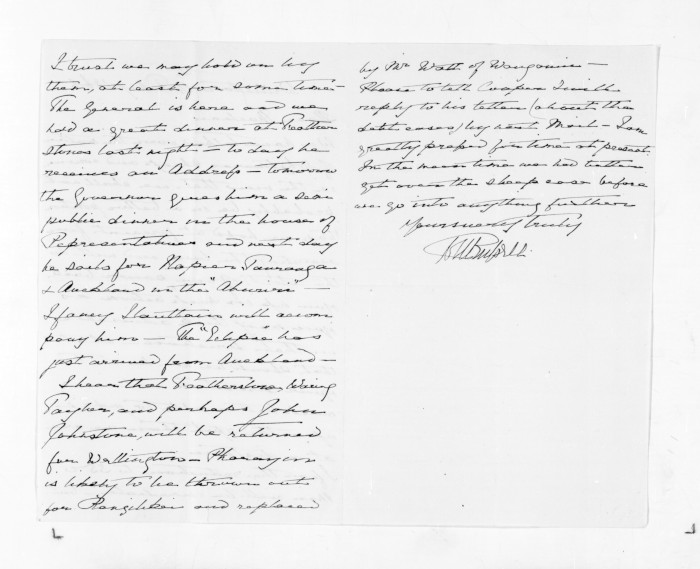 I trust we may hold on by
them, at least for some time -
The General is here and we
had a great dinner at Feather
stones last night - to day he
receives an Address - tomorrow
the Governor gives him a semi
public dinner in the house of
Representatives and next day
he sails for Napier Tauranga
& Auckland in the "Ahuriri" -
I fancy Haultain will accom
pany him - The "Eclipse" has
just arrived from Auckland -
I hear that Featherstone, Waring
Taylor, and perhaps John
Johnstone, will be returned
for Wellington - Pharazyn
is likely to be thrown out
for Rangitikei and replaced
by Mr Watt of Wanganui -
Please to tell Cooper I will
reply to his letter (about the
debt cases) by next Mail - I am
greatly pressed for time at present.
In the mean time we had better
get over the sheep case before
we go into anything further
Yours very truly